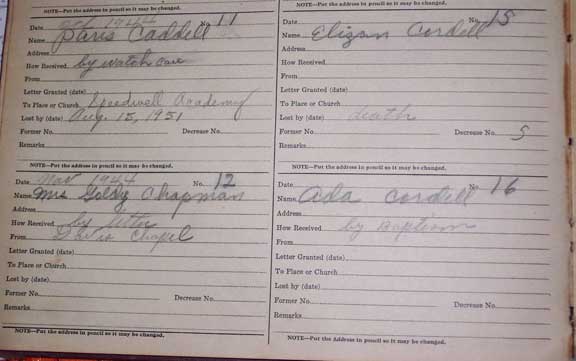 NOTE—Put the address in pencil so it may be changed.
Date 1944 No. 11
Name Paris Caddell
Address
How Received by watch care
From
Letter Granted (date)
To Place or Church Speedwell Academy
Lost by (date) Aug. 15, 1951
Former No. Decrease No.
Remarks
NOTE—Put the address in pencil so it may be changed.
Date Nov 1944 No. 12
Name Mrs Goldy Chapman
Address
How Received by letter
From Davis Chapel
Letter Granted (date)
To Place or Church
Lost by (date)
Former No. Decrease No.
Remarks
NOTE—Put the address in pencil so it may be changed.
NOTE—Put the address in pencil so it may be changed.
Date No. 15
Name Elizan Cordell
Address
How Received
From
Letter Granted (date)
To Place or Church
Lost by (date) death
Former No. Decrease No. 5
Remarks
NOTE—Put the address in pencil so it may be changed.
Date No. 16
Name Ada Cordell
Address
How Received by Baptism
From
Letter Granted (date)
To Place or Church
Lost by (date)
Former No. Decrease No.
Remarks
NOTE—Put the address in pencil so it may be changed.